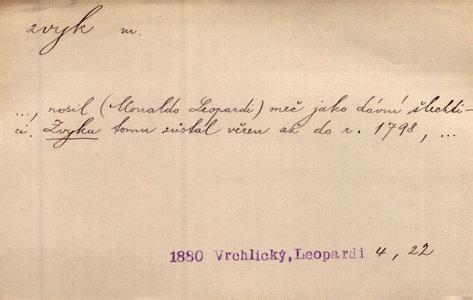 zvyk m.
..., nosil (Monaldo Leopardi) meč jako dávní šlechti-
ci. Zvyku tomu zůstal věren až do r. 1798, ...
1880 Vrchlický, Leopardi 4, 22